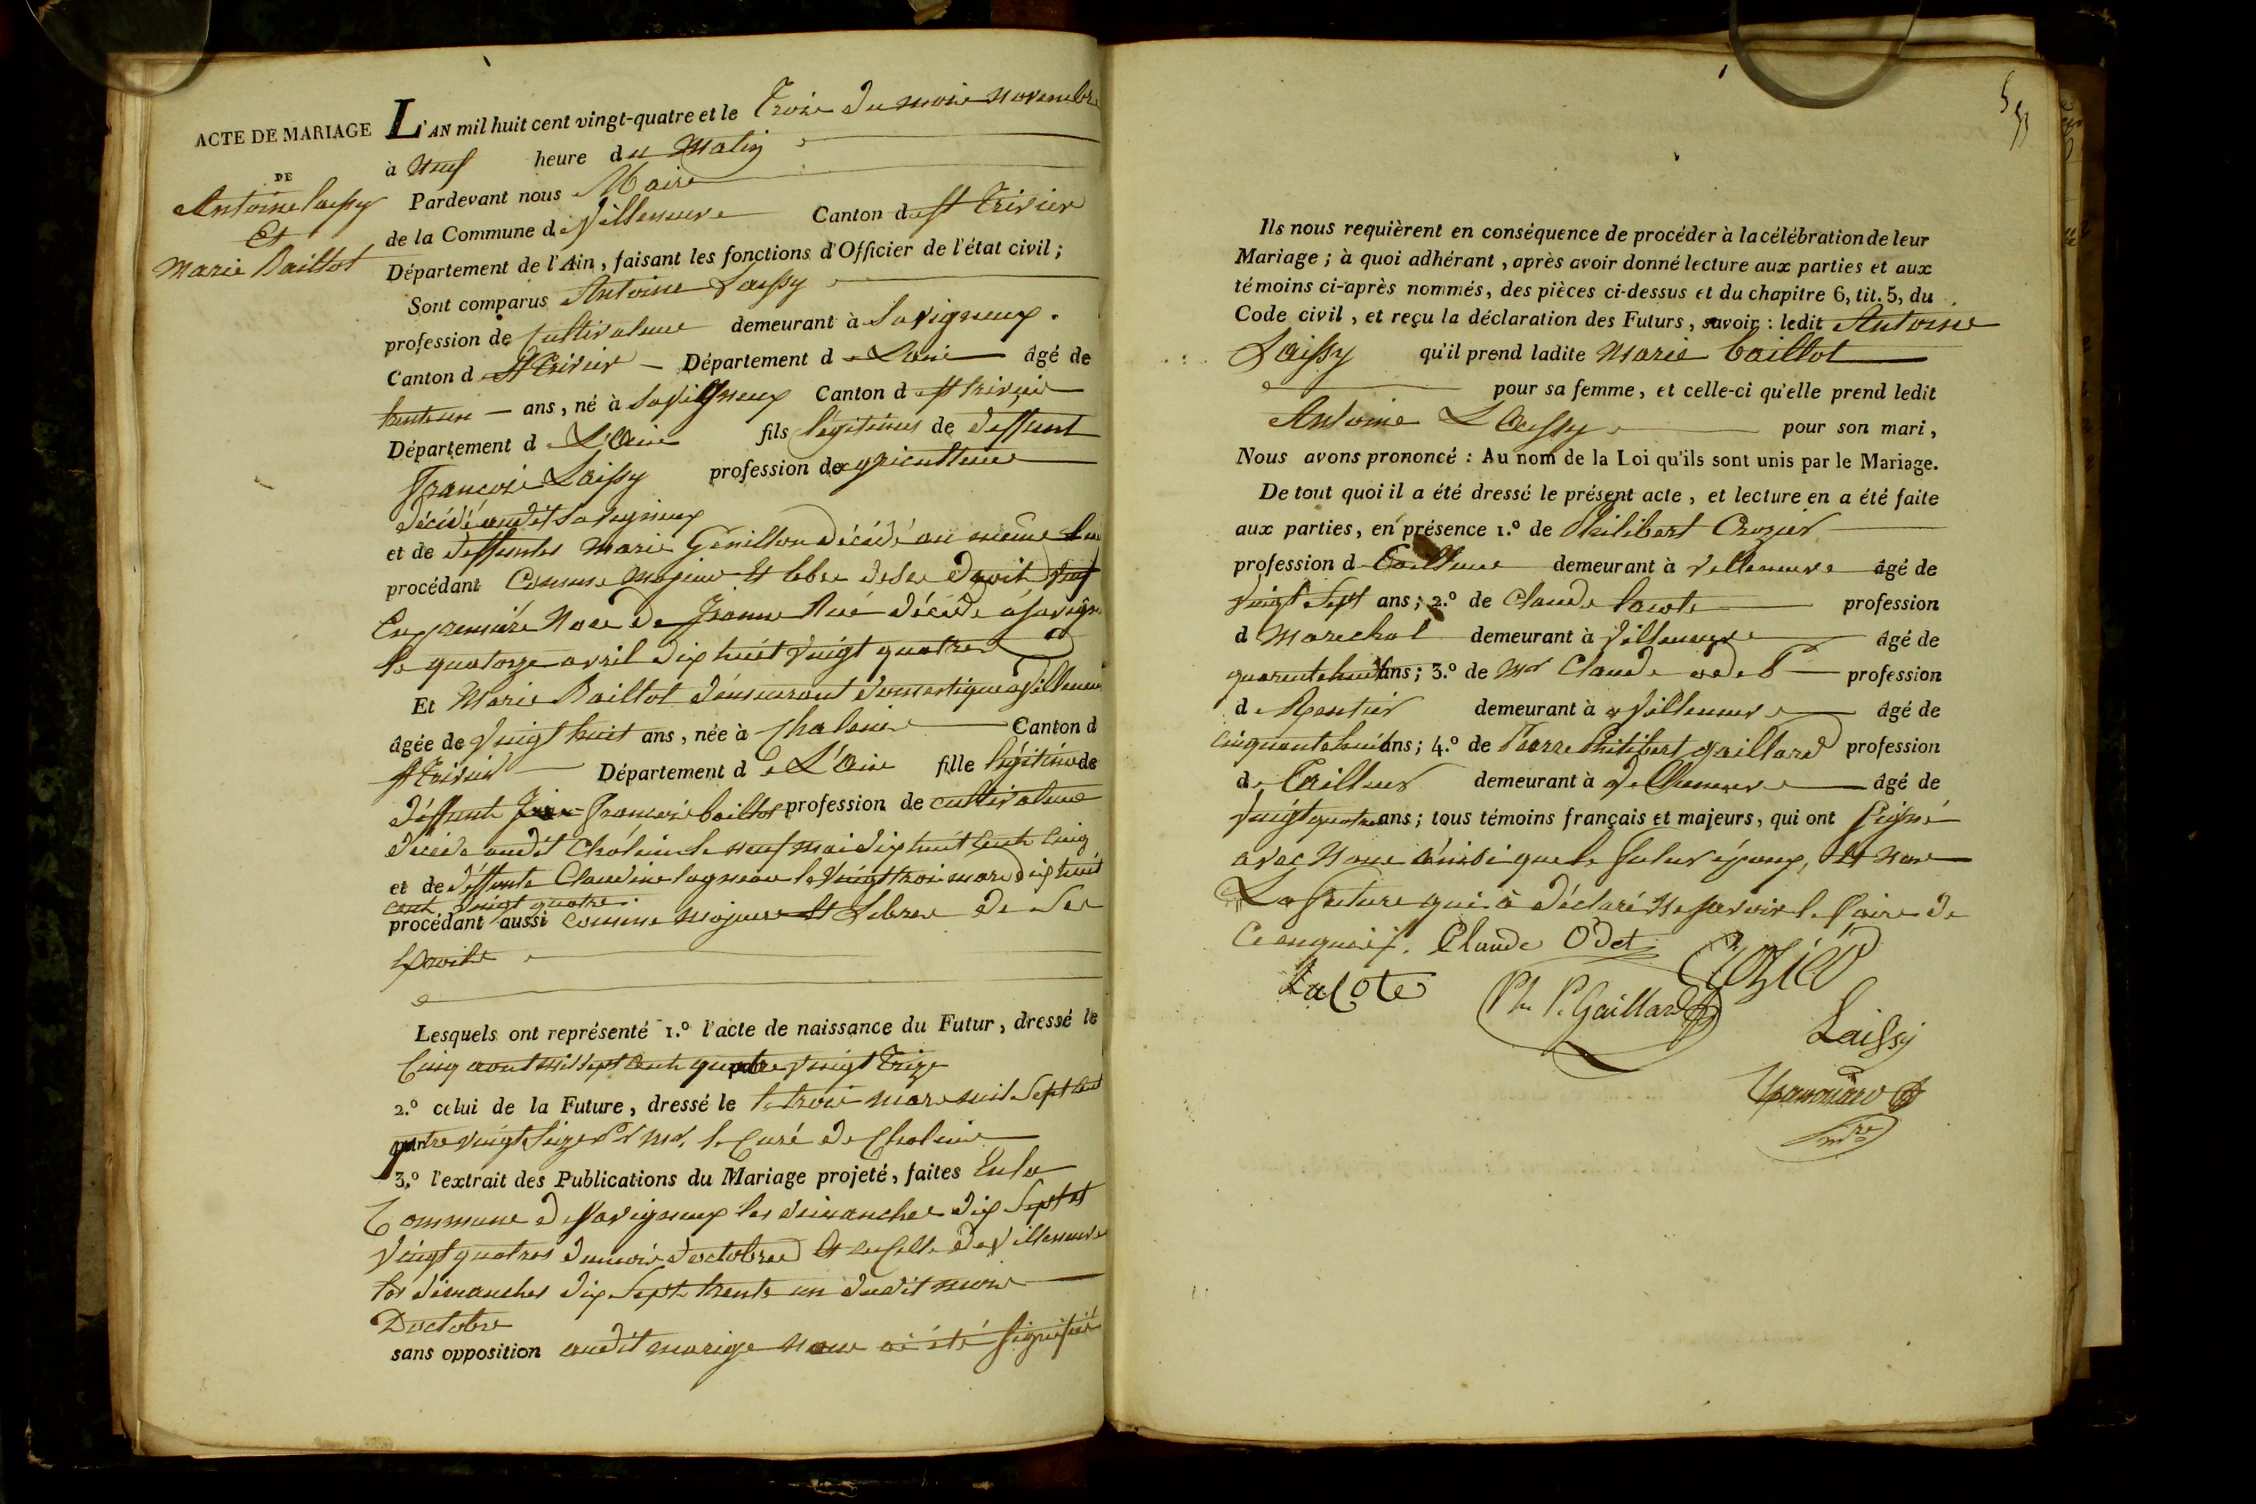 ACTE DE MARIAGE
DE
Antoine laissy
Et
Marie Baillot
L'AN mil huit cent vingt-quatre et le Trois du mois novembre
à Neuf heure du Matin
Pardevant nous Maire
de la Commune de Villeneuve Canton de St Trivier
Département de l'Ain, faisant les fonctions d'Officier de l'état civil ;
Sont comparus Antoine Laissy
profession de Cultivateur demeurant à Savigneux.
Canton d St Trivier Département d Lain âgé de
trente un ans, né à Savigneux Canton de St trivier
Département de L'Ain fils légitimes de deffunt
François Laissy profession de agriculteur
décédé audit Savigneux
et de deffuntes Marie Genillon décédé au même lieu
procédant Comme Majeur et libre de ses droit Veuf
En première Noce de Jeanne décédé à Savign
le quatorze avril dix huit vingt quatre
Et Marie Baillot demeurant domestique a Villeneuv
âgée de vingt huit ans, née à Chaleins Canton d
St Trivier Département de L'Ain fille légitime de
deffunt François baillot profession de cultivateur
décédé audit Chaleins le neuf mai dix huit cent cinq
et de deffunte Claudine lagneau le vingt trois mars dix huit
cent vingt quatre.
procédant aussi comme majeure et Libre de Ses
Droits
Lesquels ont représenté 1.º l'acte de naissance du Futur, dressé le
Cinq aout mil sept cent quatre vingt treize
2.º celui de la Future, dressé le le trois mars mil Sept cent
quatre vingt Seize Pr Mr. le Curé de Chaleins
3.º l'extrait des Publications du Mariage projeté, faites En la
Commune de Savigneux les dimanches dix Sept et
Vingt quatres du mois d'octobre Et en Celle de Villeneuve
les dimanches dix Sept trente un dudit mois
D'octobre
sans opposition audit mariage nous ai été Signifiée
Ils nous requièrent en conséquence de procéder à la célébration de leur
Mariage ; à quoi adhérant, après avoir donné lecture aux parties et aux
témoins ci-après nommés, des pièces ci-dessus et du chapitre 6, tit. 5, du
Code civil, et reçu la déclaration des Futurs, savoir : ledit Antoine
Laissy qu'il prend ladite Marie baillot
pour sa femme, et celle-ci qu'elle prend ledit
Antoine Laissy pour son mari,
Nous avons prononcé : Au nom de la Loi qu'ils sont unis par le Mariage.
De tout quoi il a été dressé le présent acte, et lecture en a été faite
aux parties, en présence 1.º de Philibert Crozier
profession d Tailleur demeurant à Villeneuve âgé de
vingt Sept ans ; 2.º de Claude lacote profession
d Marechal demeurant à Villeneuve âgé de
quarente huit ans ; 3.º de Mr Claude odet profession
de Rentier demeurant à Villeneuve âgé de
cinquante huit ans ; 4.º de Pierre Philibert gaillard profession
de Tailleur demeurant à Villeneuve âgé de
vingt quatre ans ; tous témoins français et majeurs, qui ont Signé
avec Nous ainsi que le futur époux, Et non
La future qui à déclaré Ne savoir le faire de
Ce enquis. Claude Odet Crozier
Lacote Ph P. Gaillard
Laissy
mre